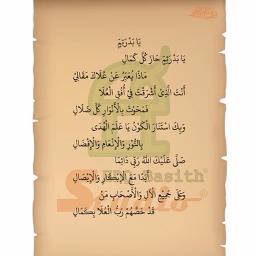 يَا بَدْرَتِمّ
يَا بَدْرَتِمّ حَازَ كُلَّ كَمَالِ
مَاذَا يُعَبِّرُ عَنْ عُلَاكَ مَقَالِي
أَنْتَ الَّذِي أَشْرَقْتَ فِي أُفُقِ الْعُلَا
فَمَحَوْتَ بِالْأَنْوَارِ كُلَّ ضَلَالِ
وَبِكَ اسْتَنَارَ الْكَوْنُ يَا عَلَمَ الْهُدَى
بِالنُّوْرِ وَالْإِنْعَامِ وَالْإِفْضَالِ
صَلَّى عَلَيْكَ اللهُ رَبِّي دَائِمًا
أَبَدًا مَعَ الْإِبْكَارِ وَالْآصَالِ
وَعَلَى جَمِيْعِ الْآلِ وَالْأَصْحَابِ مَنْ
قَدْ خَصَّهُمْ رَبُّ الْعُلَا بِكَمَالِ